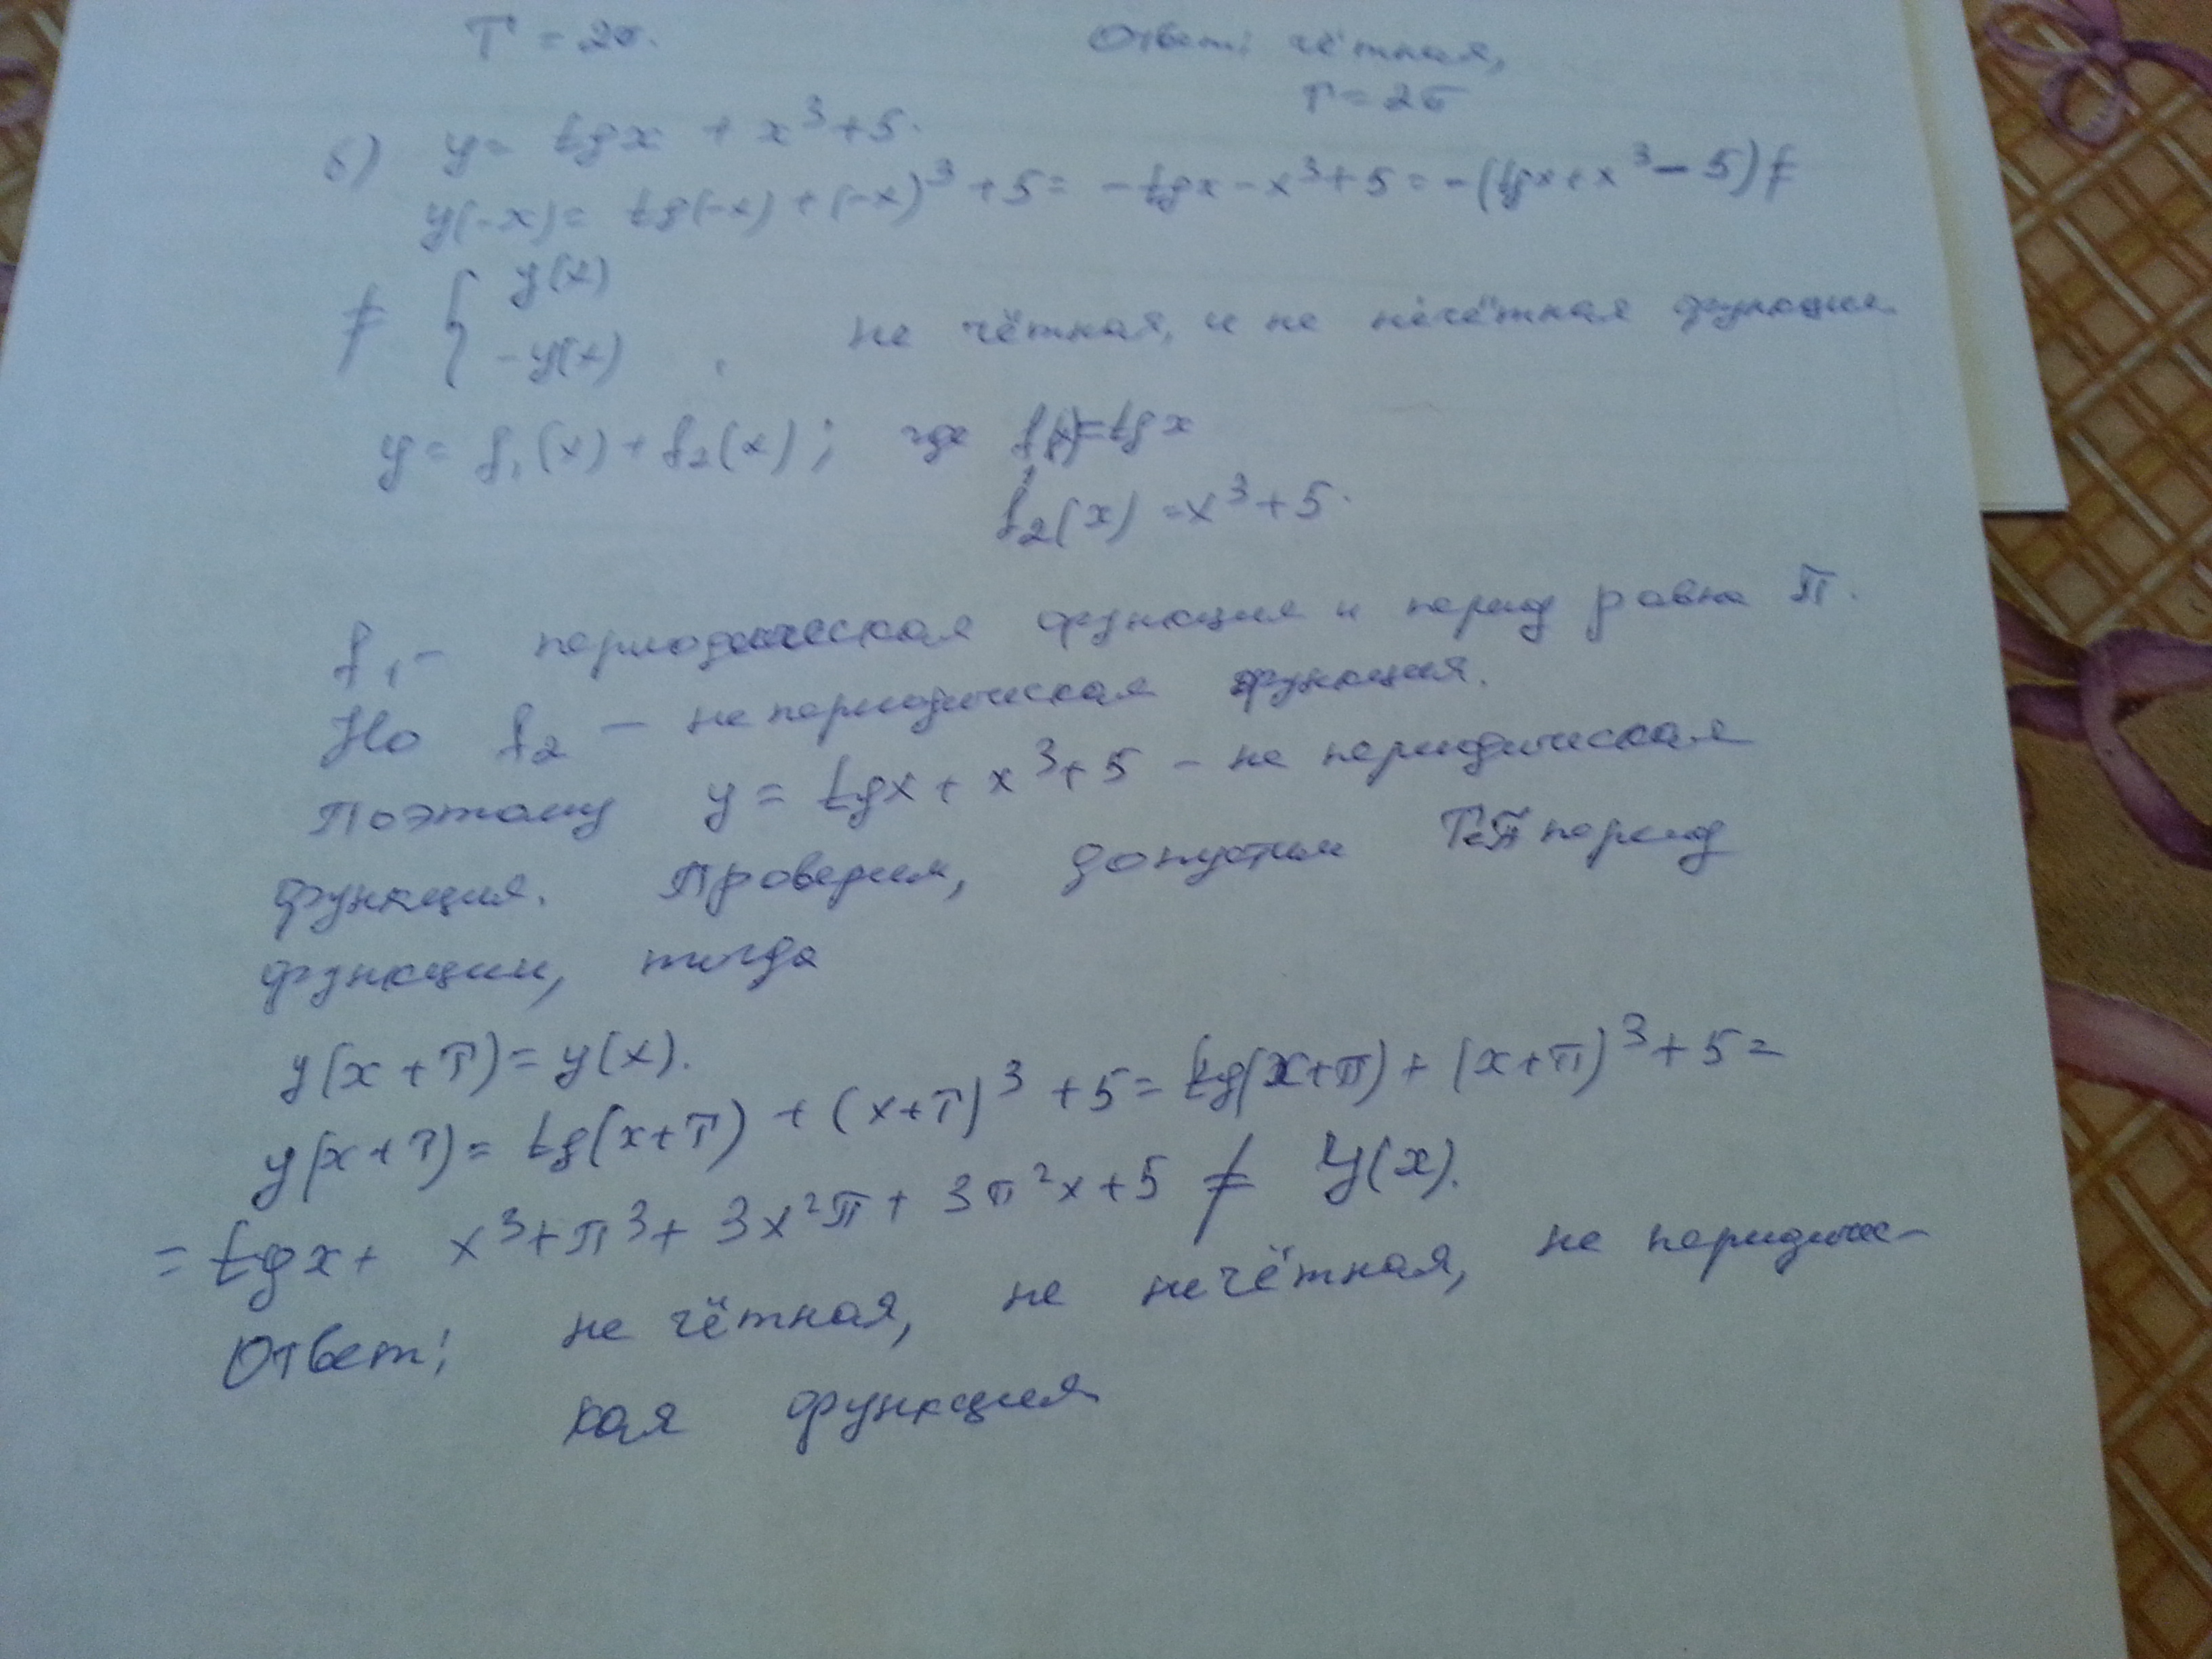 T = 2π. Ответ: чётная,
T = 2π
б) y = tgx + x³+5.
y(-x)= tg(-x) + (-x)³ +5= -tgx - x³+5 = -(tgx+x³-5) ≠
≠ { y(x)
-y(x) , не чётная, и не нечётная функция
y = f₁(x) + f₂(x); где f₁(x)=tgx
f₂(x) =x³+5.
f₁ - периодическая функция и период равна π.
Но f₂ - не периодическая функция.
Поэтому y = tgx + x³+5 - не периодическая
функция. Проверим, допустим T=π период
функции, тогда
y(x+T)= y(x).
y(x+T)= tg(x+T) + (x+T)³ +5= tg(x+π) + (x+π)³+5=
= tgx + x³+π³+ 3x²π + 3π²x+5 ≠ y(x).
Ответ: не чётная, не нечётная, не периодичес-
кая функция